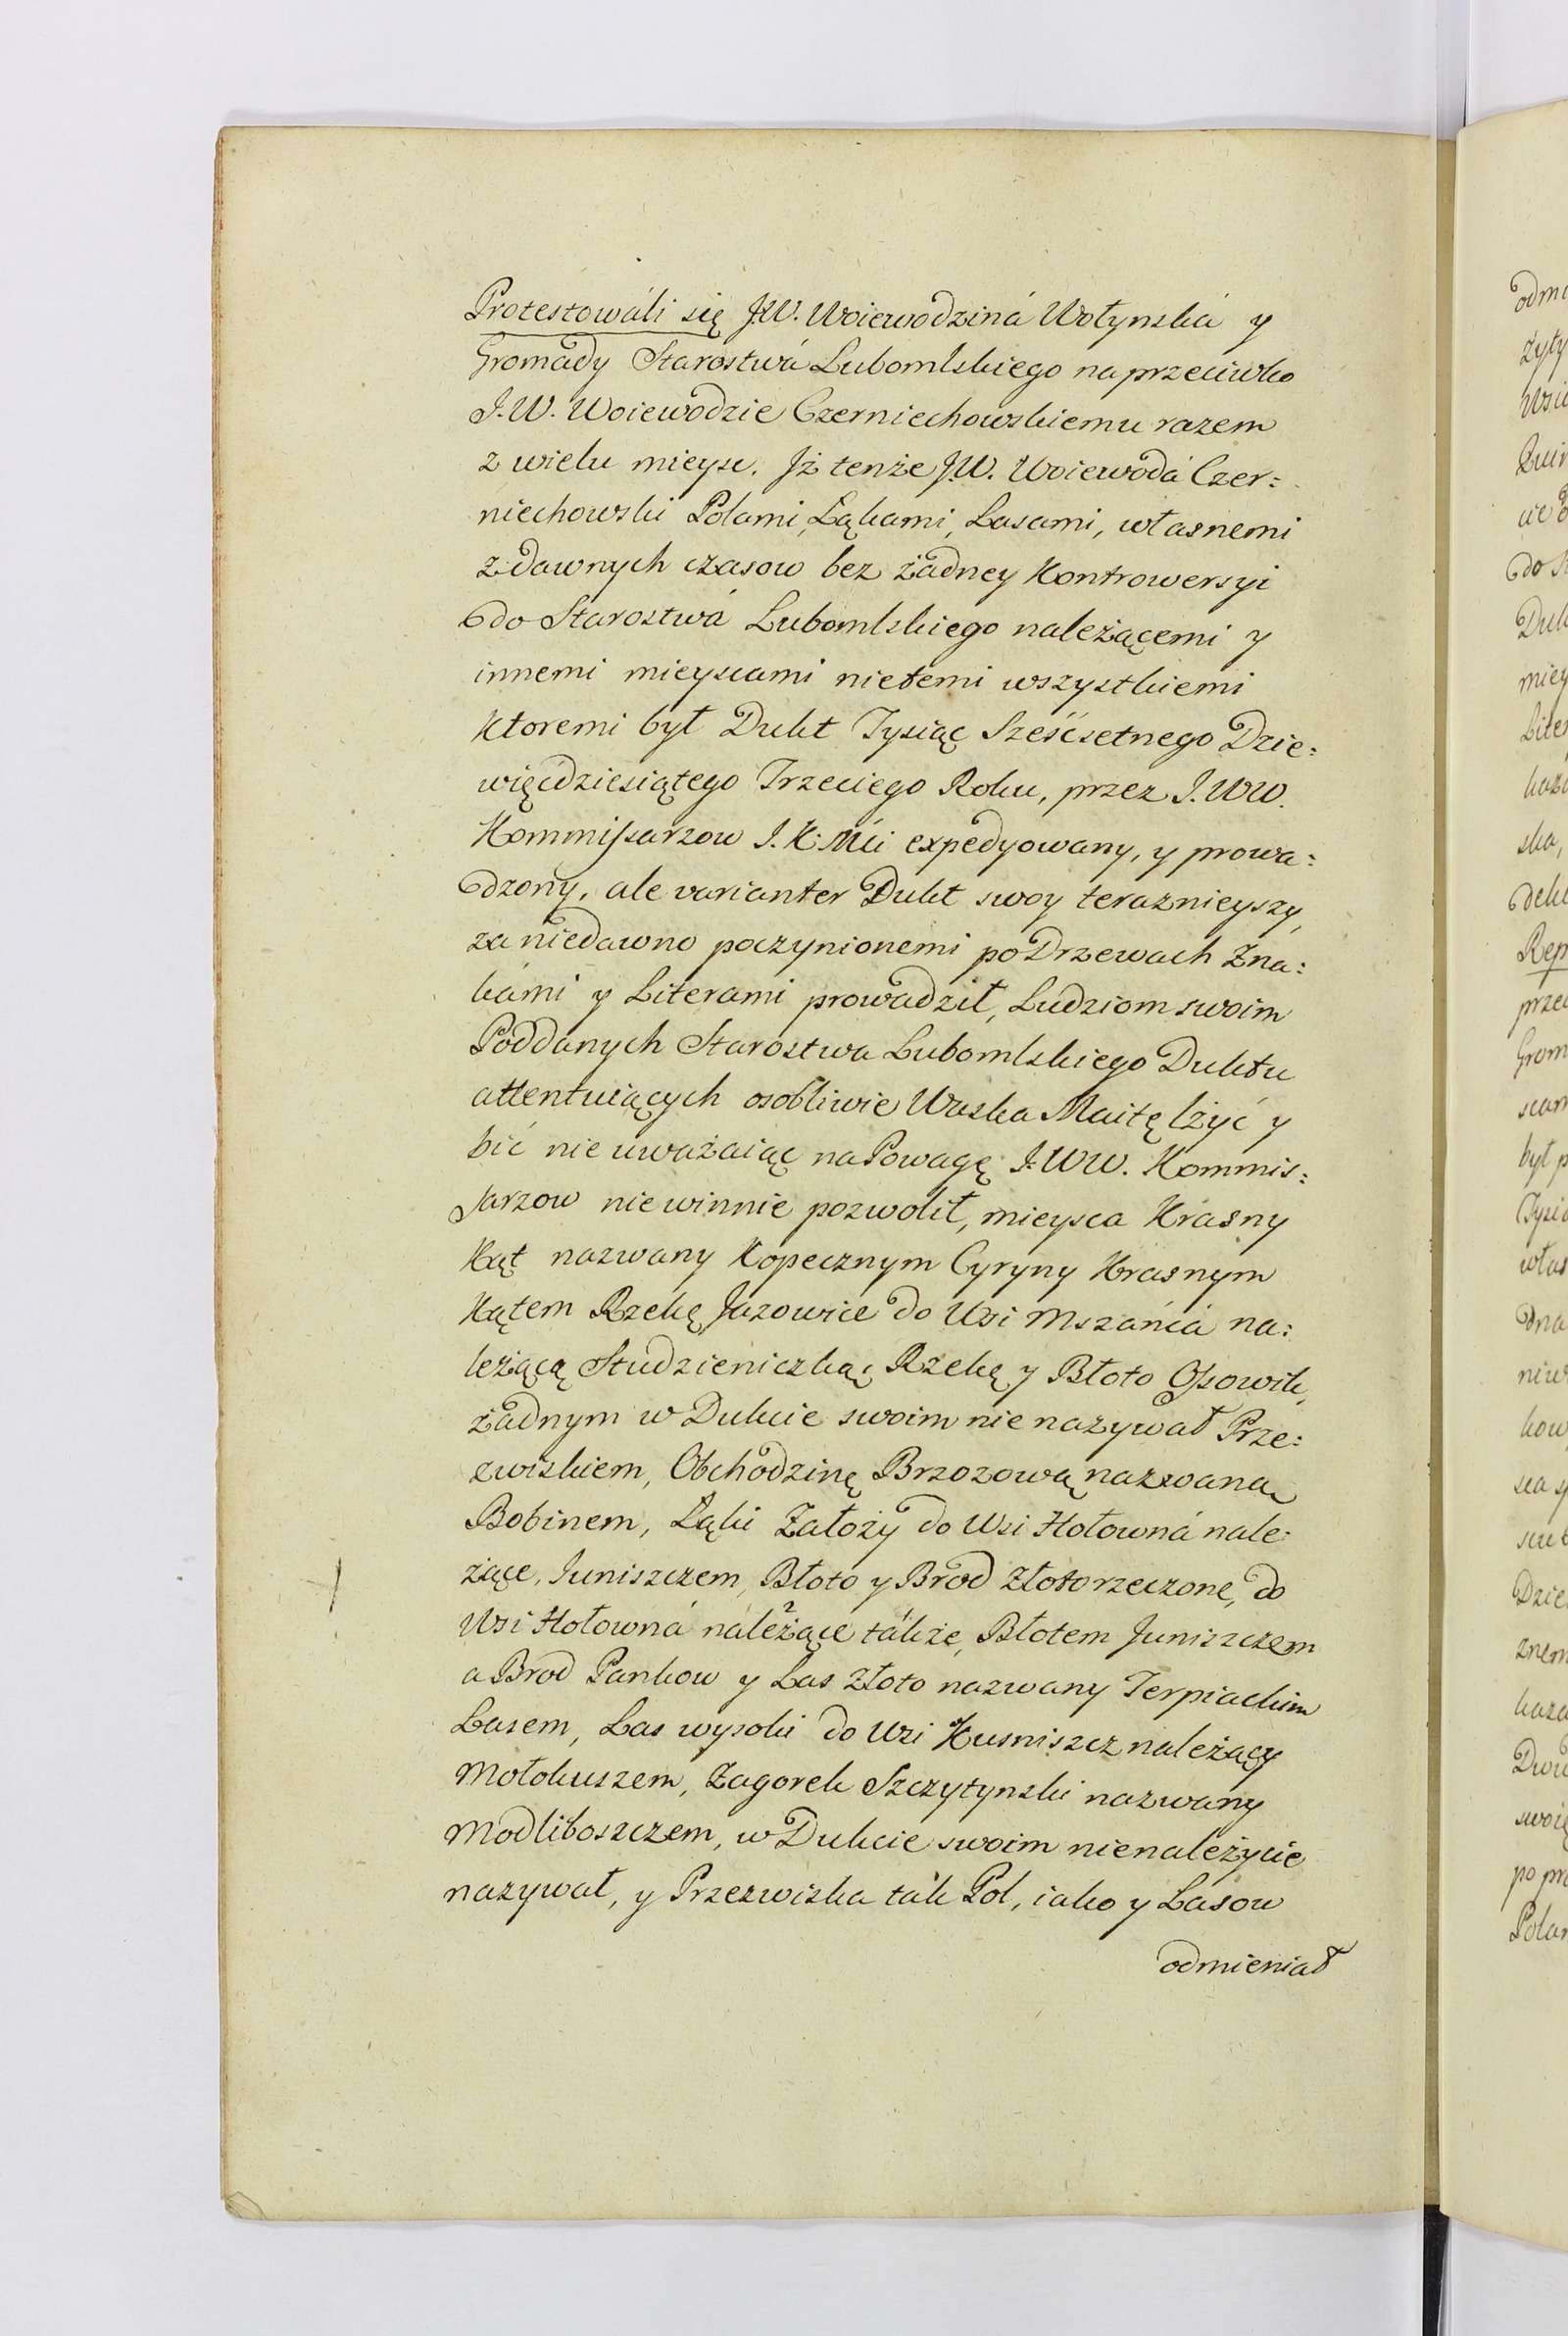 Protestowáli się J.W. Woiewodziná Wołynska y
Gromady Starostwá Lubomlskiego na przeciwko
J. W. Woiewodzie Czerniechowskiemu razem
z wielu mieysc. Jż tenże J.W. Woiewodá Czer:
niechowski Polami, Łąkami, Lasami, własnemi
z dawnych czasow bez żadney Kontrowersyi
do Starostwá Lubomlskiego należącemi y
innemi mieyscami nietemi wszystkiemi
Ktoremi był Dukt Tysiąc Sześćsetnego Dzie:
więćdziesiątego Trzeciego Roku, przez J. WW.
Kommissarzow J. K. Mci expedyowany, y prowa:
dzony, ale varianter Dukt swoy teraznieyszy,
za niedawno poczynionemi po Drzewach Zna:
kámi y Literami prowadził, Ludziom swoim
Poddanych Starostwa Lubomlskiego Duktu
attentuiących osobliwie Waska Maitę lżyć y
bić nie uważaiąc na Powagę J. WW. Kommis:
sarzow niewinnie pozwolił, mieysca Krasny
Kąt nazwany Kopecznym Cyryny Krasnym
Kątem Rzekę Jazowice do Wsi Mszáńcá na:
leżącą Studzieniczką, Rzekę y Błoto Ossowik,
żadnym w Dukcie swoim nie nazywał Prze:
zwiskiem, Obchodzinę Brzozową nazwaną
Bobinem, Łąki Założy do Wsi Hołowná nale:
żące, Juniszczem, Błoto y Brod Złotorzeczone, do
Wsi Hołowná náleżące tákże, Błotem Juniszczem
a Brod Pankow y Las Złoto nazwany Terpiackim
Lasem, Las wysoki do Wsi Kusniszcz należący
Mołokuszem, Zagorek Szczytynski nazwany
Modliboszczem, w Dukcie swoim nienależycie
nazywał, y Przezwiska tak Pol, iako y Lasow
odmieniał